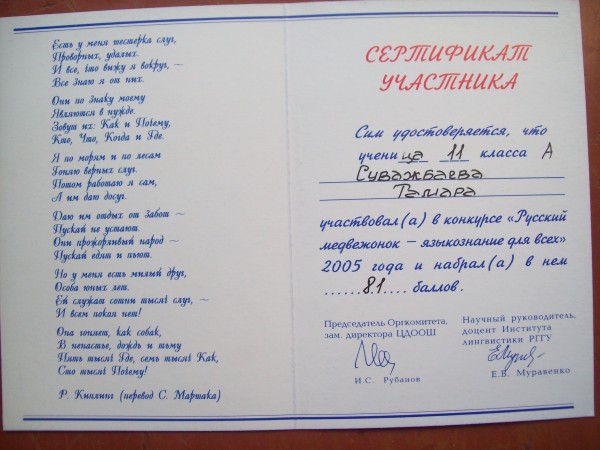 Есть у меня шестерка слуг,
Проворных, удалых.
И все, что вижу я вокруг, —
Все знаю я от них.
Они по знаку моему
Являются в нужде.
Зовут их: Как и Почему,
Кто, Что, Когда и Где.
Я по морям и по лесам
Гоняю верных слуг.
Потом работаю я сам,
А им даю досуг.
Даю им отдых от забот —
Пускай не устают.
Они прожорливый народ —
Пускай едят и пьют.
Но у меня есть милый друг,
Особа юных лет.
Ей служат сотни тысяч слуг, —
И всем покоя нет!
Она гоняет, как собак,
В ненастье, дождь и тьму
Пять тысяч Где, семь тысяч Как,
Сто тысяч Почему!
Р. Киплинг (перевод С. Маршака)
СЕРТИФИКАТ
УЧАСТНИКА
Сим удостоверяется, что
учени ца 11 класса А
Суважбаева
Тамара
участвовал(а) в конкурсе «Русский
медвежонок – языкознание для всех»
2005 года и набрал(а) в нем
......81.... баллов.
Председатель Оргкомитета,
зам. директора ЦДООШ
И.С. Рубанов
Научный руководитель,
доцент Института
лингвистики РГГУ
Е.В. Муравенко